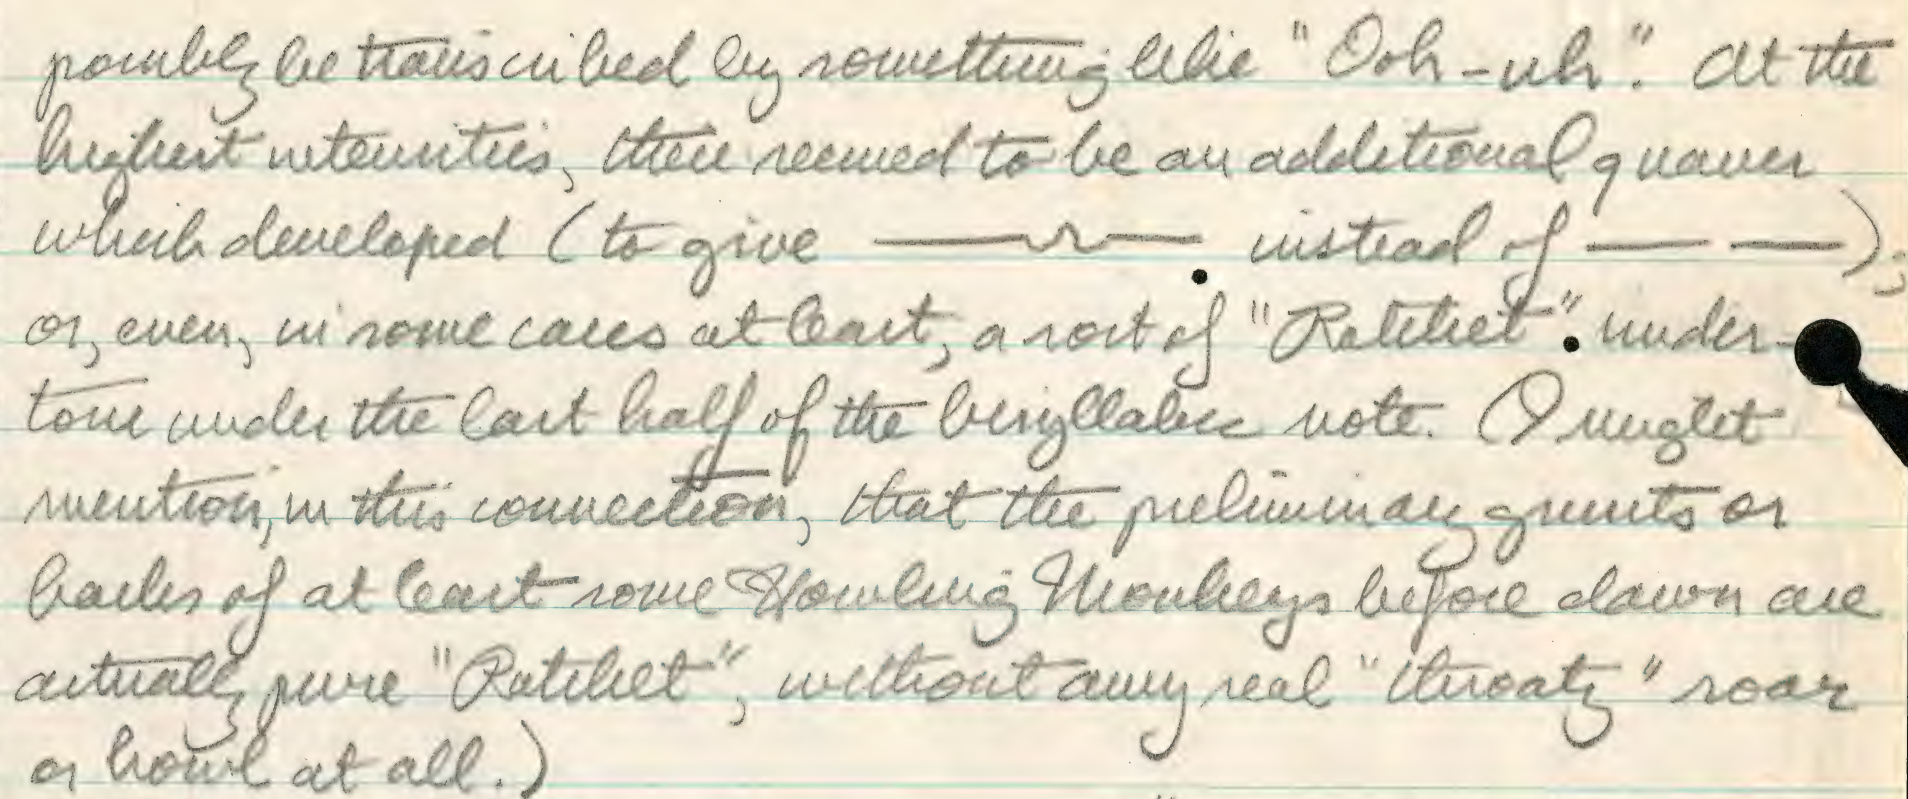 possibly be transcribed by something like "Ooh-uh". At the
highest intensities, there seemed to be an additional quaver
which developed (to give —— instead of — —);
or, even, in some cases at least, a sort of "Ratchet" under-
tone under the last half of the bisyllabic note. (I might
mention, in this connection, that the preliminary grunts or
barks of at least some Howling Monkeys before dawn are
actually pure "Ratchet", without any real "throaty" roar
or howl at all.)